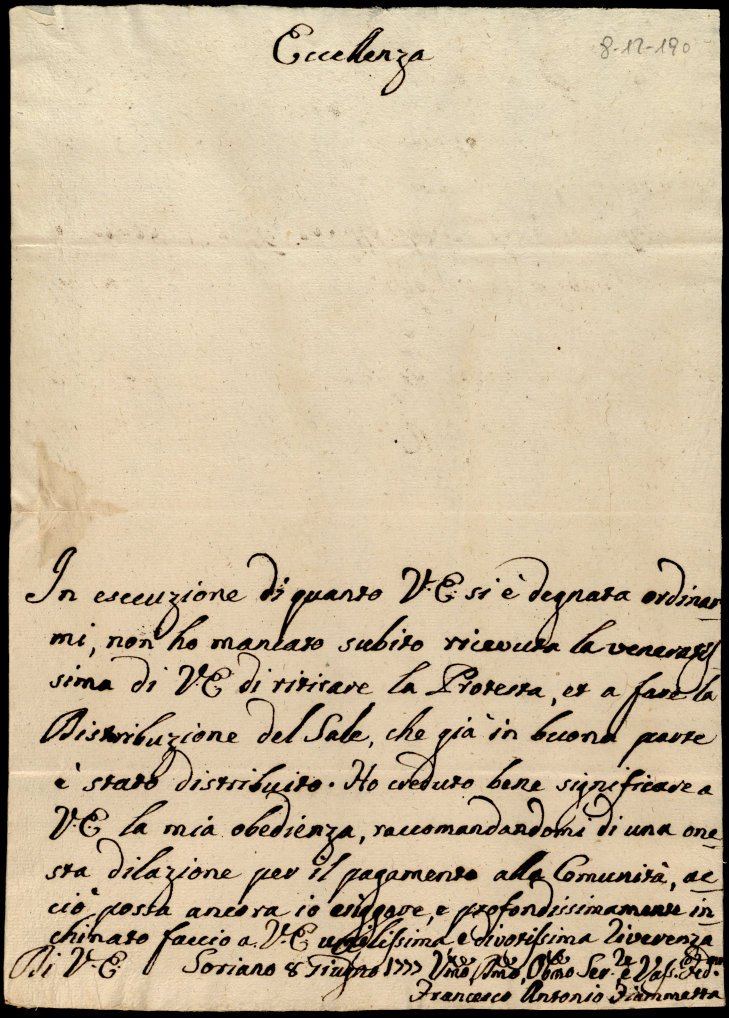 Eccellenza
8-12-190
In esecuzione di quanto V. E. si è degnata ordinar=
mi, non ho mancato subito ricevuta la veneratis=
sima di V. E. di ritirare la Protesta, et a fare la
Distribuzione del Sale, che già in buona parte
è stato distribuito. Ho creduto bene significare a
V. E. la mia obedienza, raccomandandomi di una one=
sta dilazione per il pagamento alla Comunità, ac=
ciò possa ancora io esiggere, e profondissimamente in=
chinato faccio a V. E. umilissima e divotissima Riverenza
Di V. E. Soriano 8 Giugno 1777 Vmo, Dmo, Obmo Ser.re e Vass.
Francesco Antonio Fiammetta